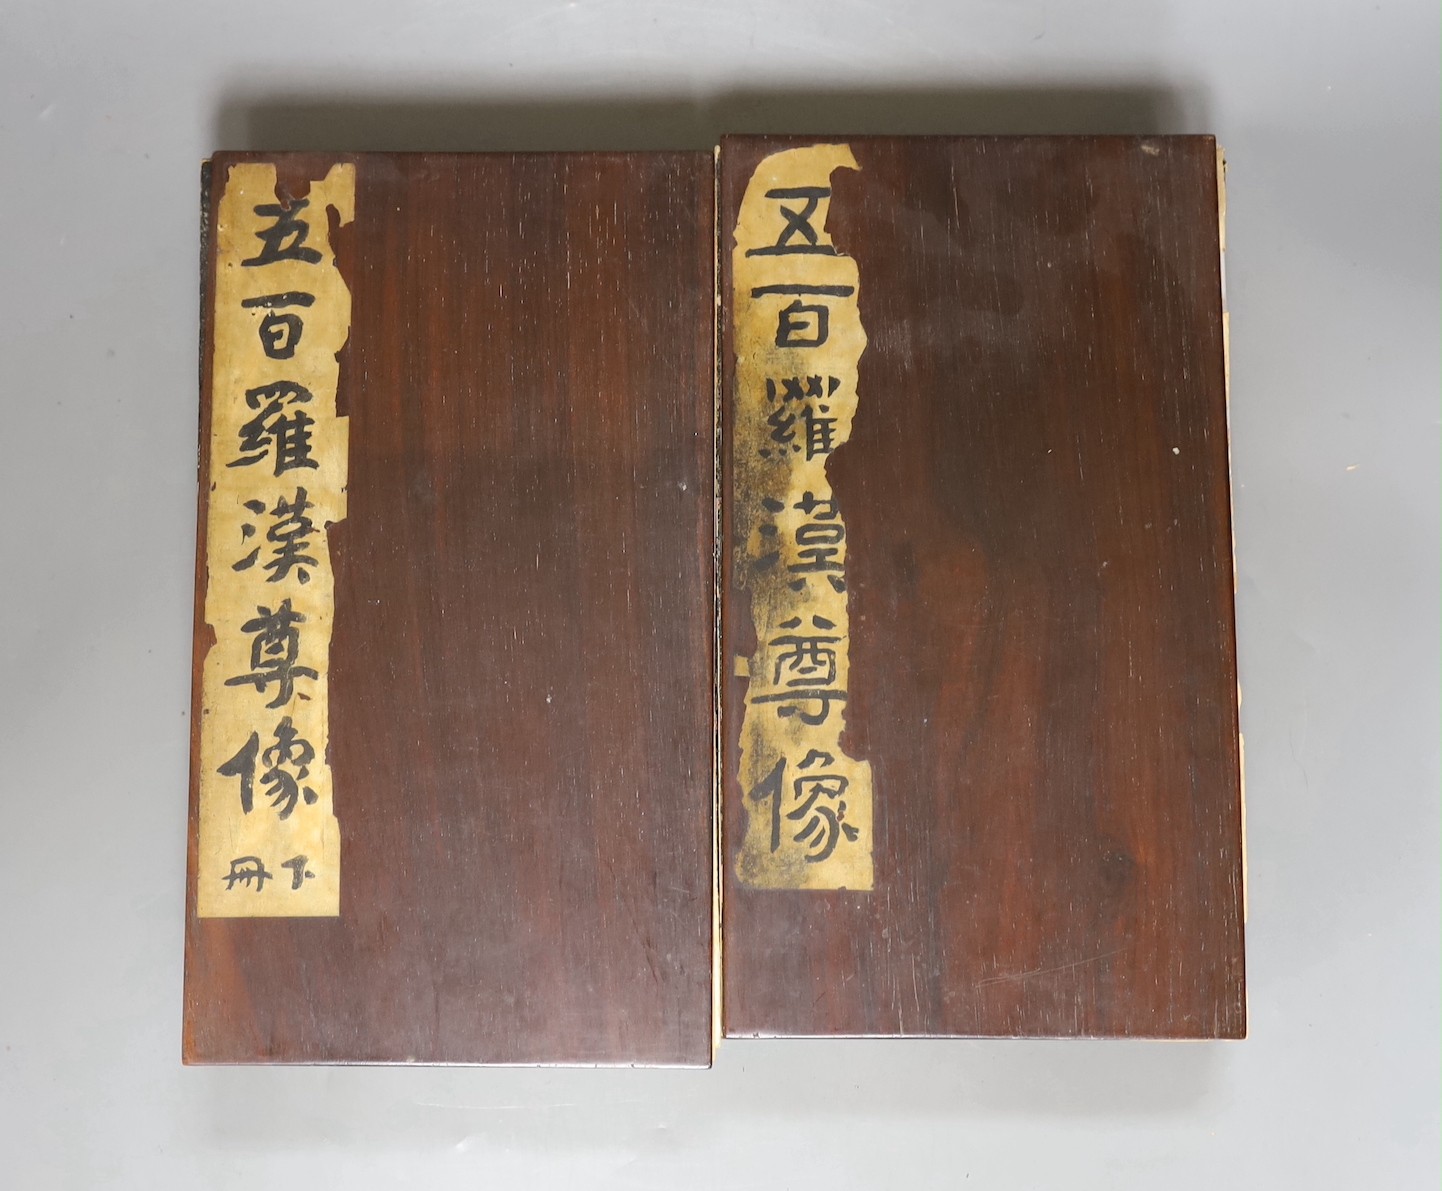 五百羅漢尊像
下冊
五百羅漢尊像